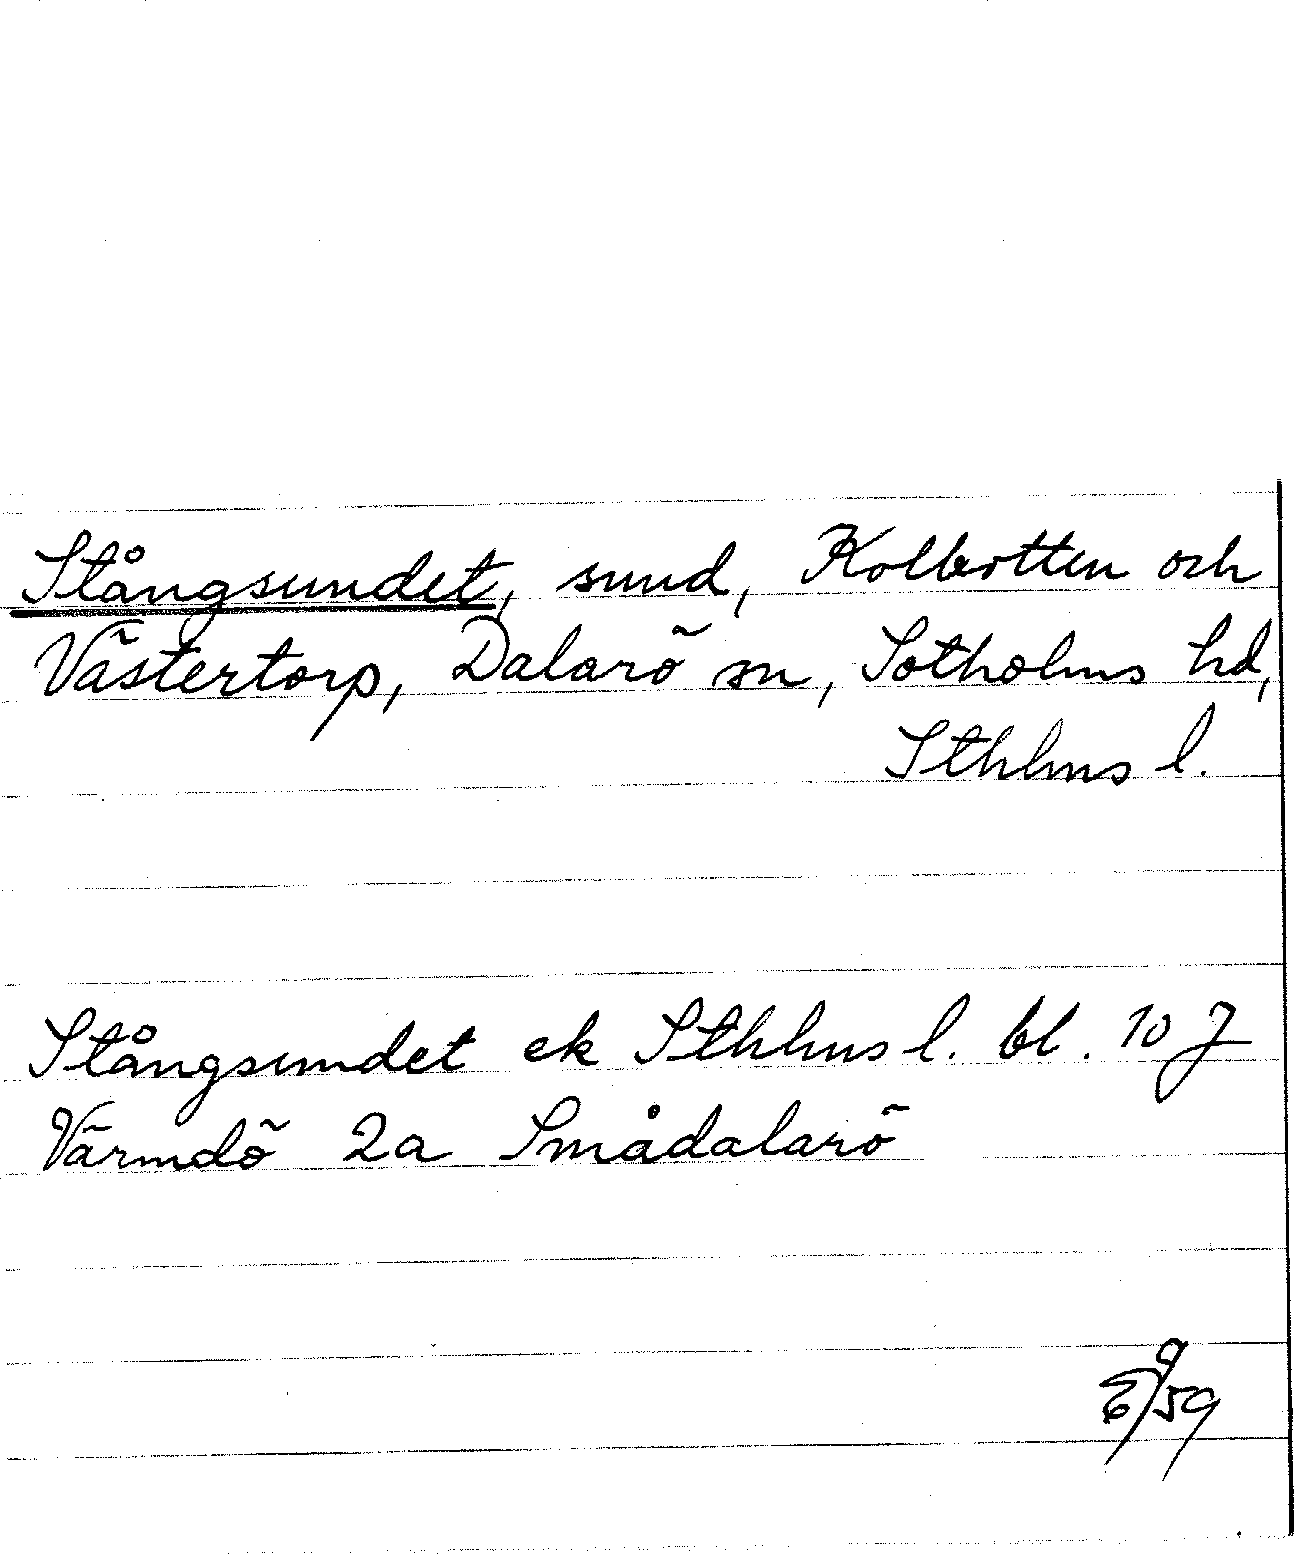 Stångsundet, sund, Kolbotten och
Västertorp, Dalarö sn, Sotholms hd,
Sthlms l.
Stångsundet ek Sthlms l. bl. 10 J
Värmdö 2a Smådalarö